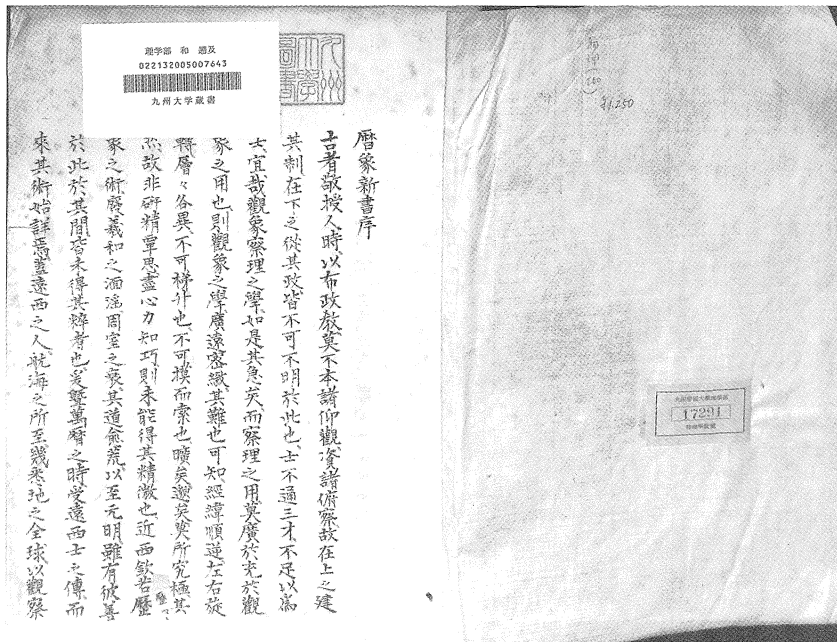 理学部 和 遡及
022132005007643
九州大学蔵書
九州
大學
圖書
暦象新書序
古者敬授人時以布政教莫不本諸仰觀資諸俯察故在上之建
其制在下之從其政皆不可不明於此也士不通三才不足以為
士宜哉觀象察理之學如是其急矣而察理之用莫廣於充於觀
象之用也則觀象之學廣遠密緻其難也可知經緯順逆左右旋
轉層々各異不可梯升也不可摸而索也曠矣邈矣莫所究極其
然故非研精覃思盡心力知巧則未能得其精微也近西欽若歷
象之術廢羲和之湎淫周室之衰其道愈荒以至元明雖有彼善
於此於其間皆未得其粹者也爰曁萬曆之時受遠西士之傳而
來其術始詳焉蓋遠西之人航海之所至幾悉地之全球以觀察
¥1,250
17291